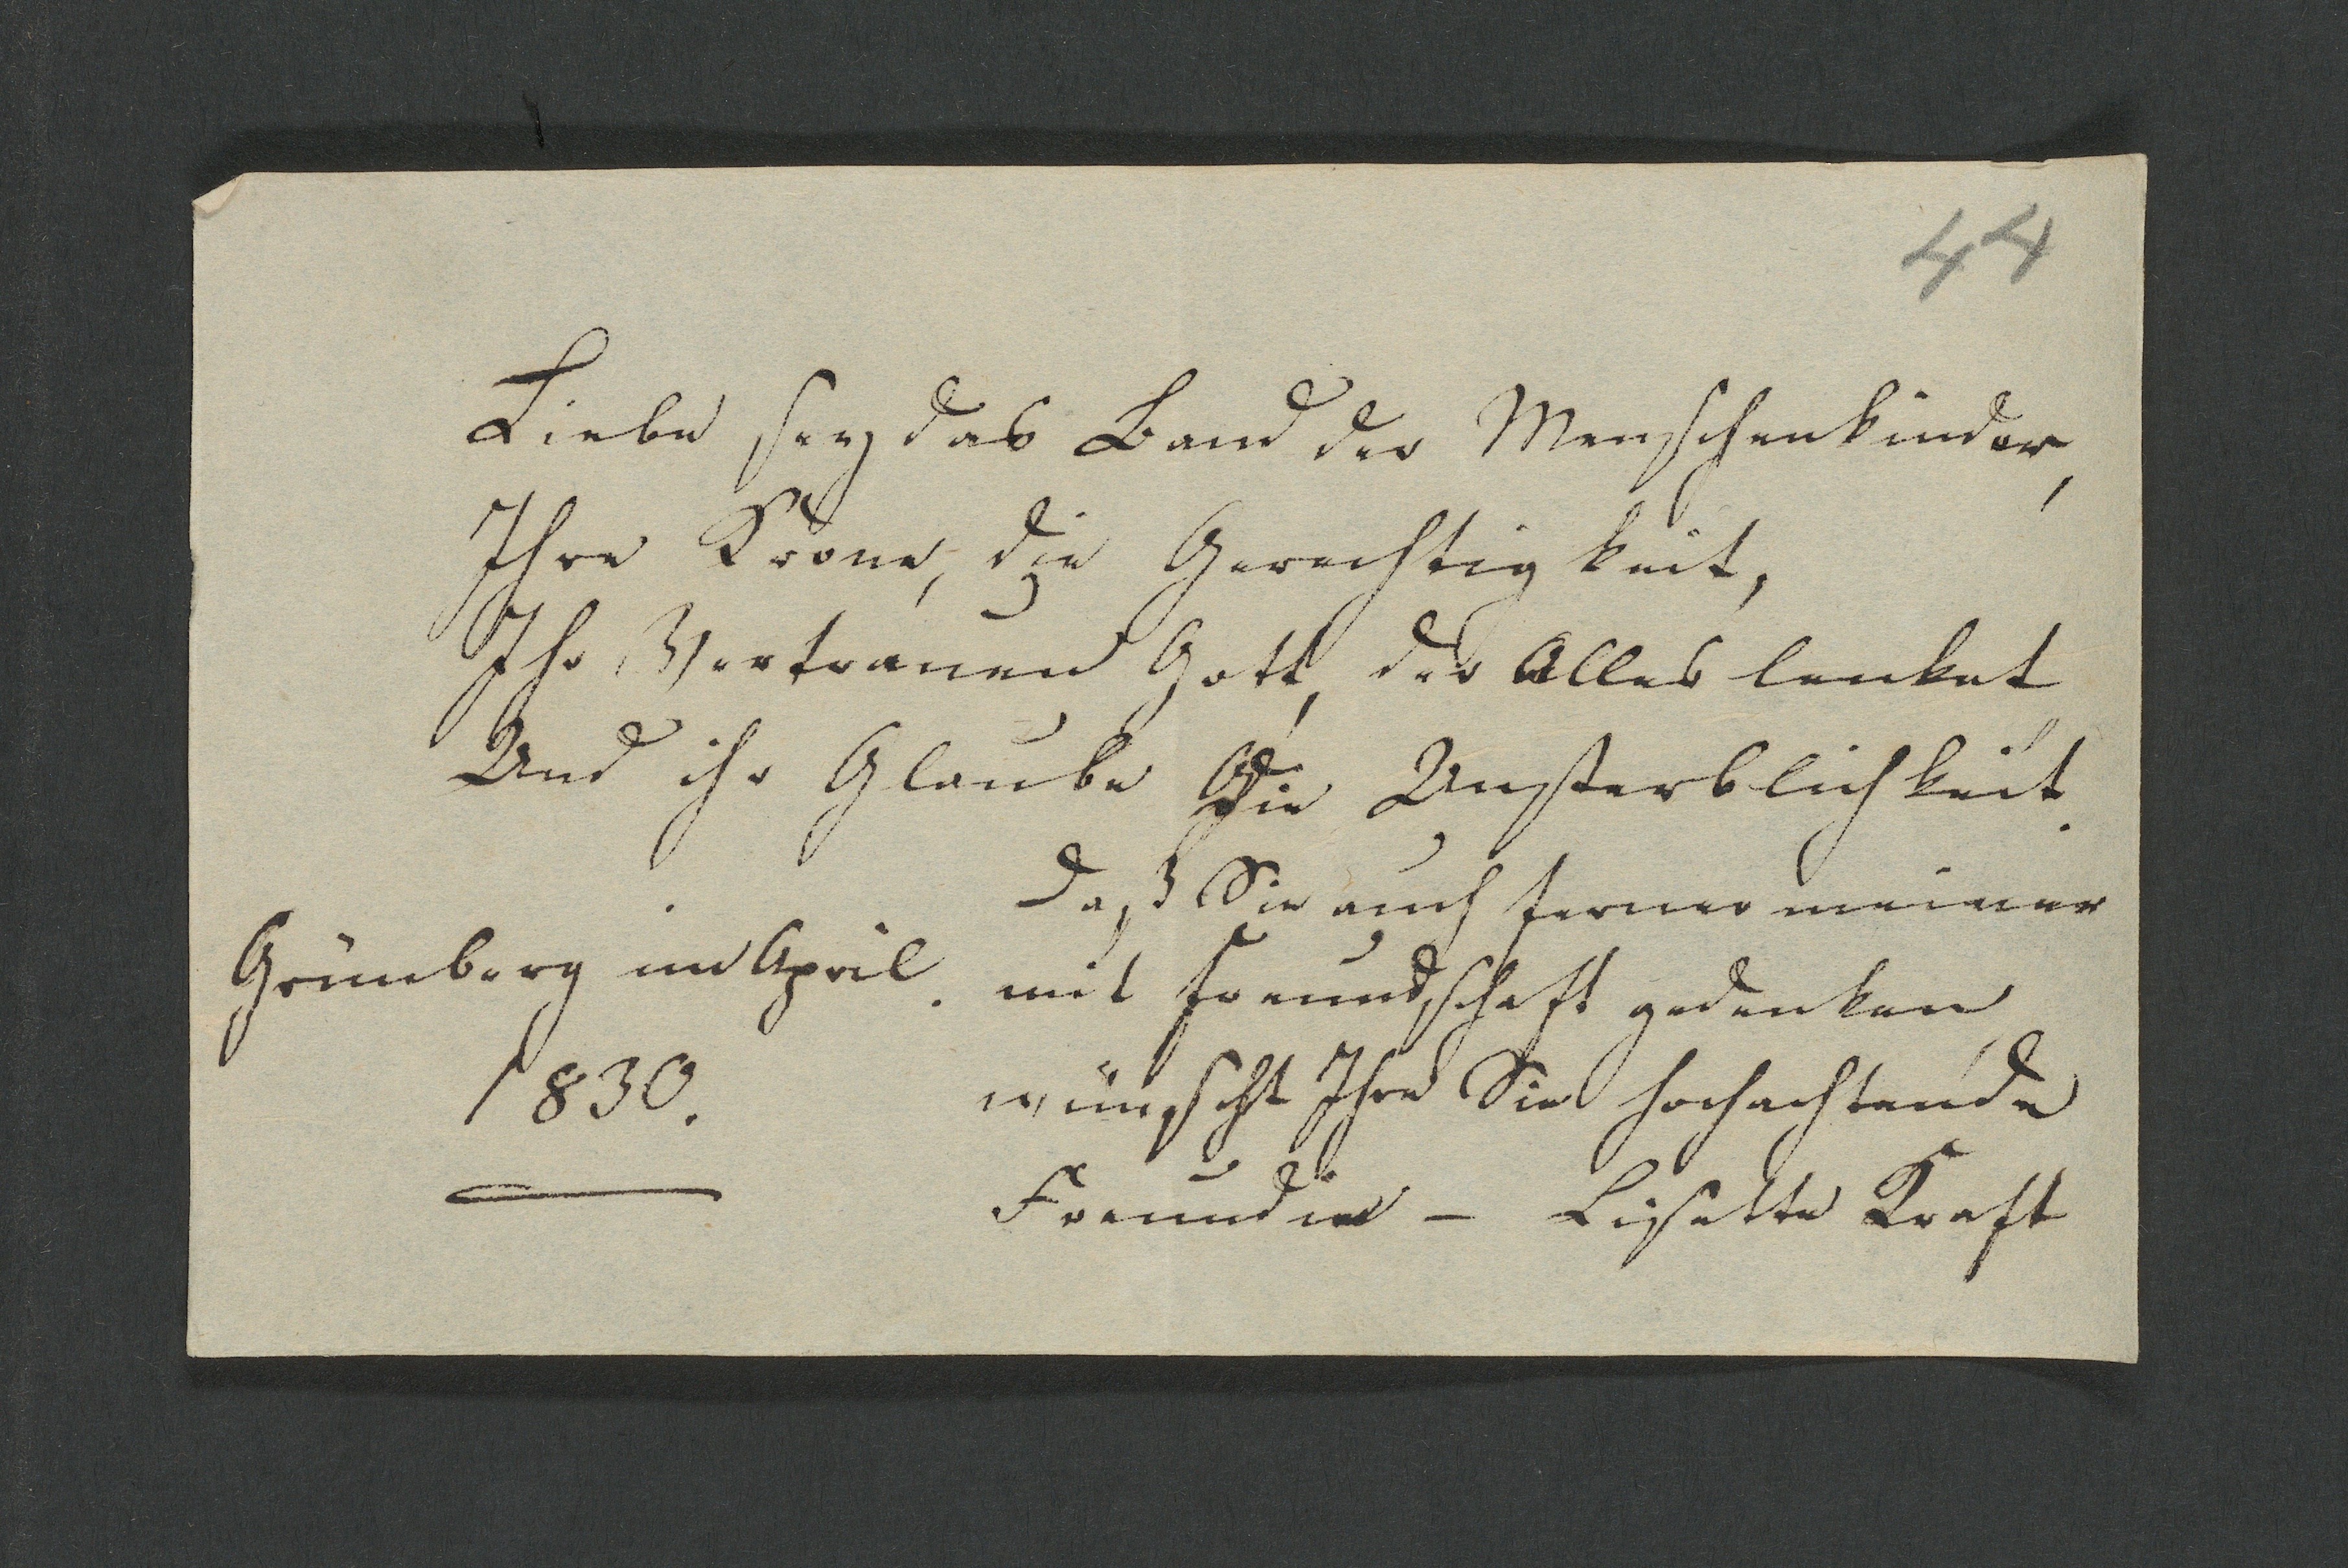 44
Liebe sey das Band der Menschenkinder,
Ihre Krone, die Gerechtigkeit,
Ihr Vertrauen Gott, der Alles lenket
Und ihr Glaube die Unsterblichkeit.
Daß Sie auch ferner meiner
Grünberg im April. mit Freundschaft gedenken,
1830. wünscht Ihre Sie hochachtende
Freundin – Lisette Kraft